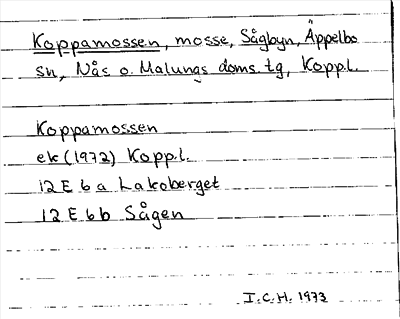 Koppamossen, mosse, Sågbyn, Äppelbo
sn, Nås o. Malungs doms. tg, Kopp.l.
Koppamossen
ek (1972) Kopp.l.
12 E 6 a Lakoberget
12 E 6b Sågen
I.C.H. 1973